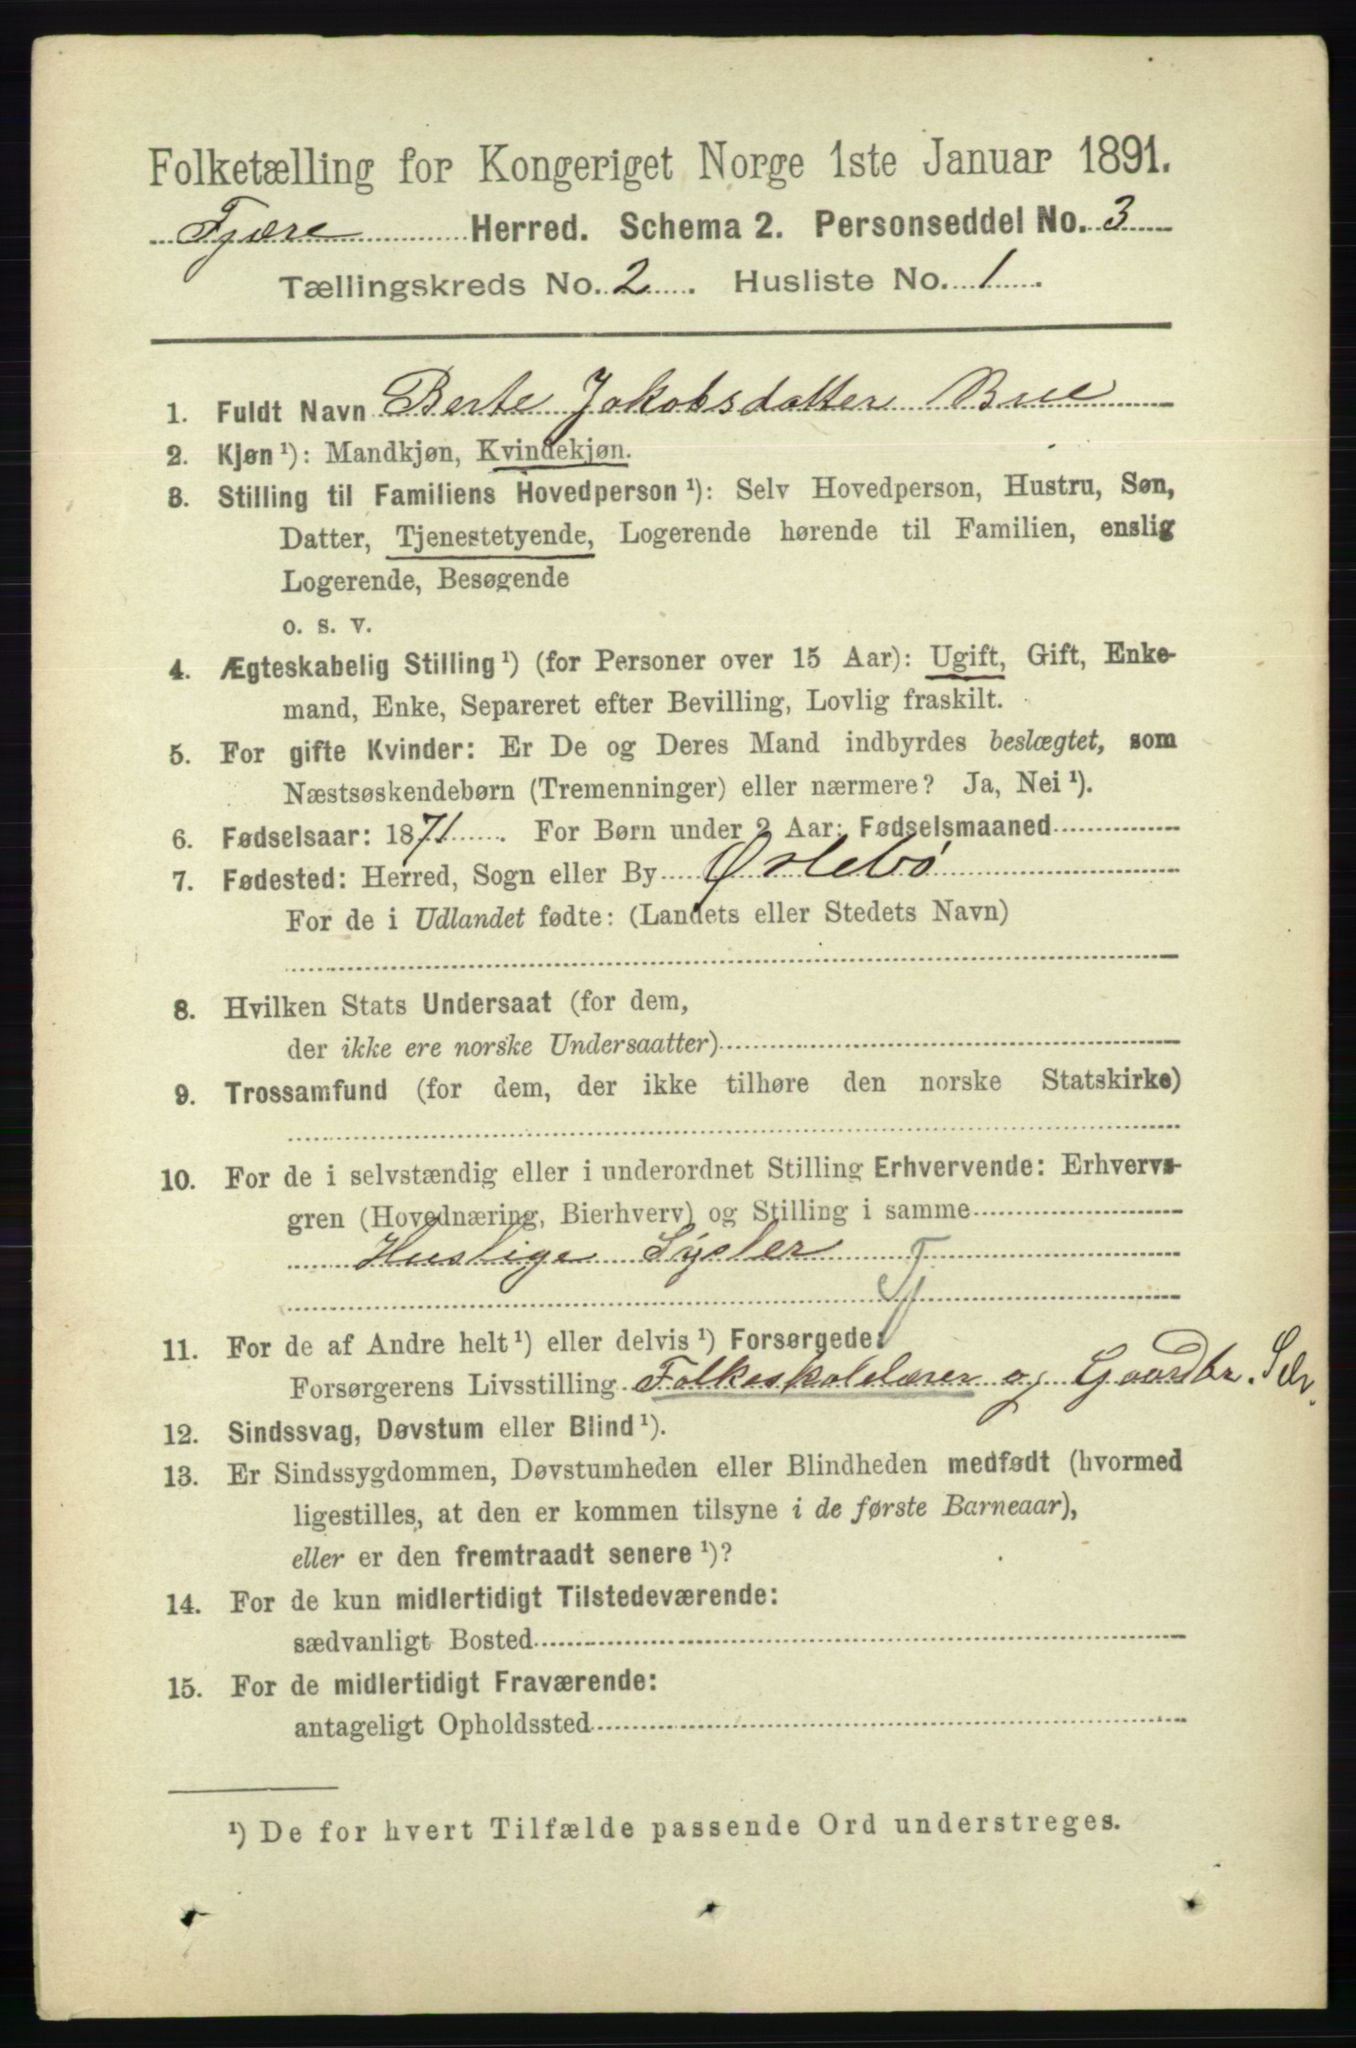 Folketælling for Kongeriget Norge 1ste Januar 1891.
Fjære Herred. Schema 2. Personseddel No. 3
Tællingskreds No. 2 . Husliste No. 1 .
1. Fuldt Navn Berte Jakobsdatter Bue
2. Kjøn ¹): Mandkjøn, Kvindekjøn.
3. Stilling til Familiens Hovedperson ¹): Selv Hovedperson, Hustru, Søn,
Datter, Tjenestetyende, Logerende hørende til Familien, enslig
Logerende, Besøgende
o. s. v.
4. Ægteskabelig Stilling ¹) (for Personer over 15 Aar): Ugift, Gift, Enke-
mand, Enke, Separeret efter Bevilling, Lovlig fraskilt.
5. For gifte Kvinder: Er De og Deres Mand indbyrdes beslægtet, som
Næstsøskendebørn (Tremenninger) eller nærmere? Ja, Nei ¹).
6. Fødselsaar: 1871 . For Børn under 2 Aar: Fødselsmaaned
7. Fødested: Herred, Sogn eller By Øslebø
For de i Udlandet fødte: (Landets eller Stedets Navn)
8. Hvilken Stats Undersaat (for dem,
der ikke ere norske Undersaatter)
9. Trossamfund (for dem, der ikke tilhøre den norske Statskirke)
10. For de i selvstændig eller i underordnet Stilling Erhvervende: Erhvervs-
gren (Hovednæring, Bierhverv) og Stilling i samme
Huslige Sysler T
11. For de af Andre helt ¹) eller delvis ¹) Forsørgede:
Forsørgerens Livsstilling Folkeskolelærer og Gaardbr. Selv.
12. Sindssvag, Døvstum eller Blind ¹).
13. Er Sindssygdommen, Døvstumheden eller Blindheden medfødt (hvormed
ligestilles, at den er kommen tilsyne i de første Barneaar),
eller er den fremtraadt senere ¹)?
14. For de kun midlertidigt Tilstedeværende:
sædvanligt Bosted
15. For de midlertidigt Fraværende:
antageligt Opholdssted
¹) De for hvert Tilfælde passende Ord understreges.